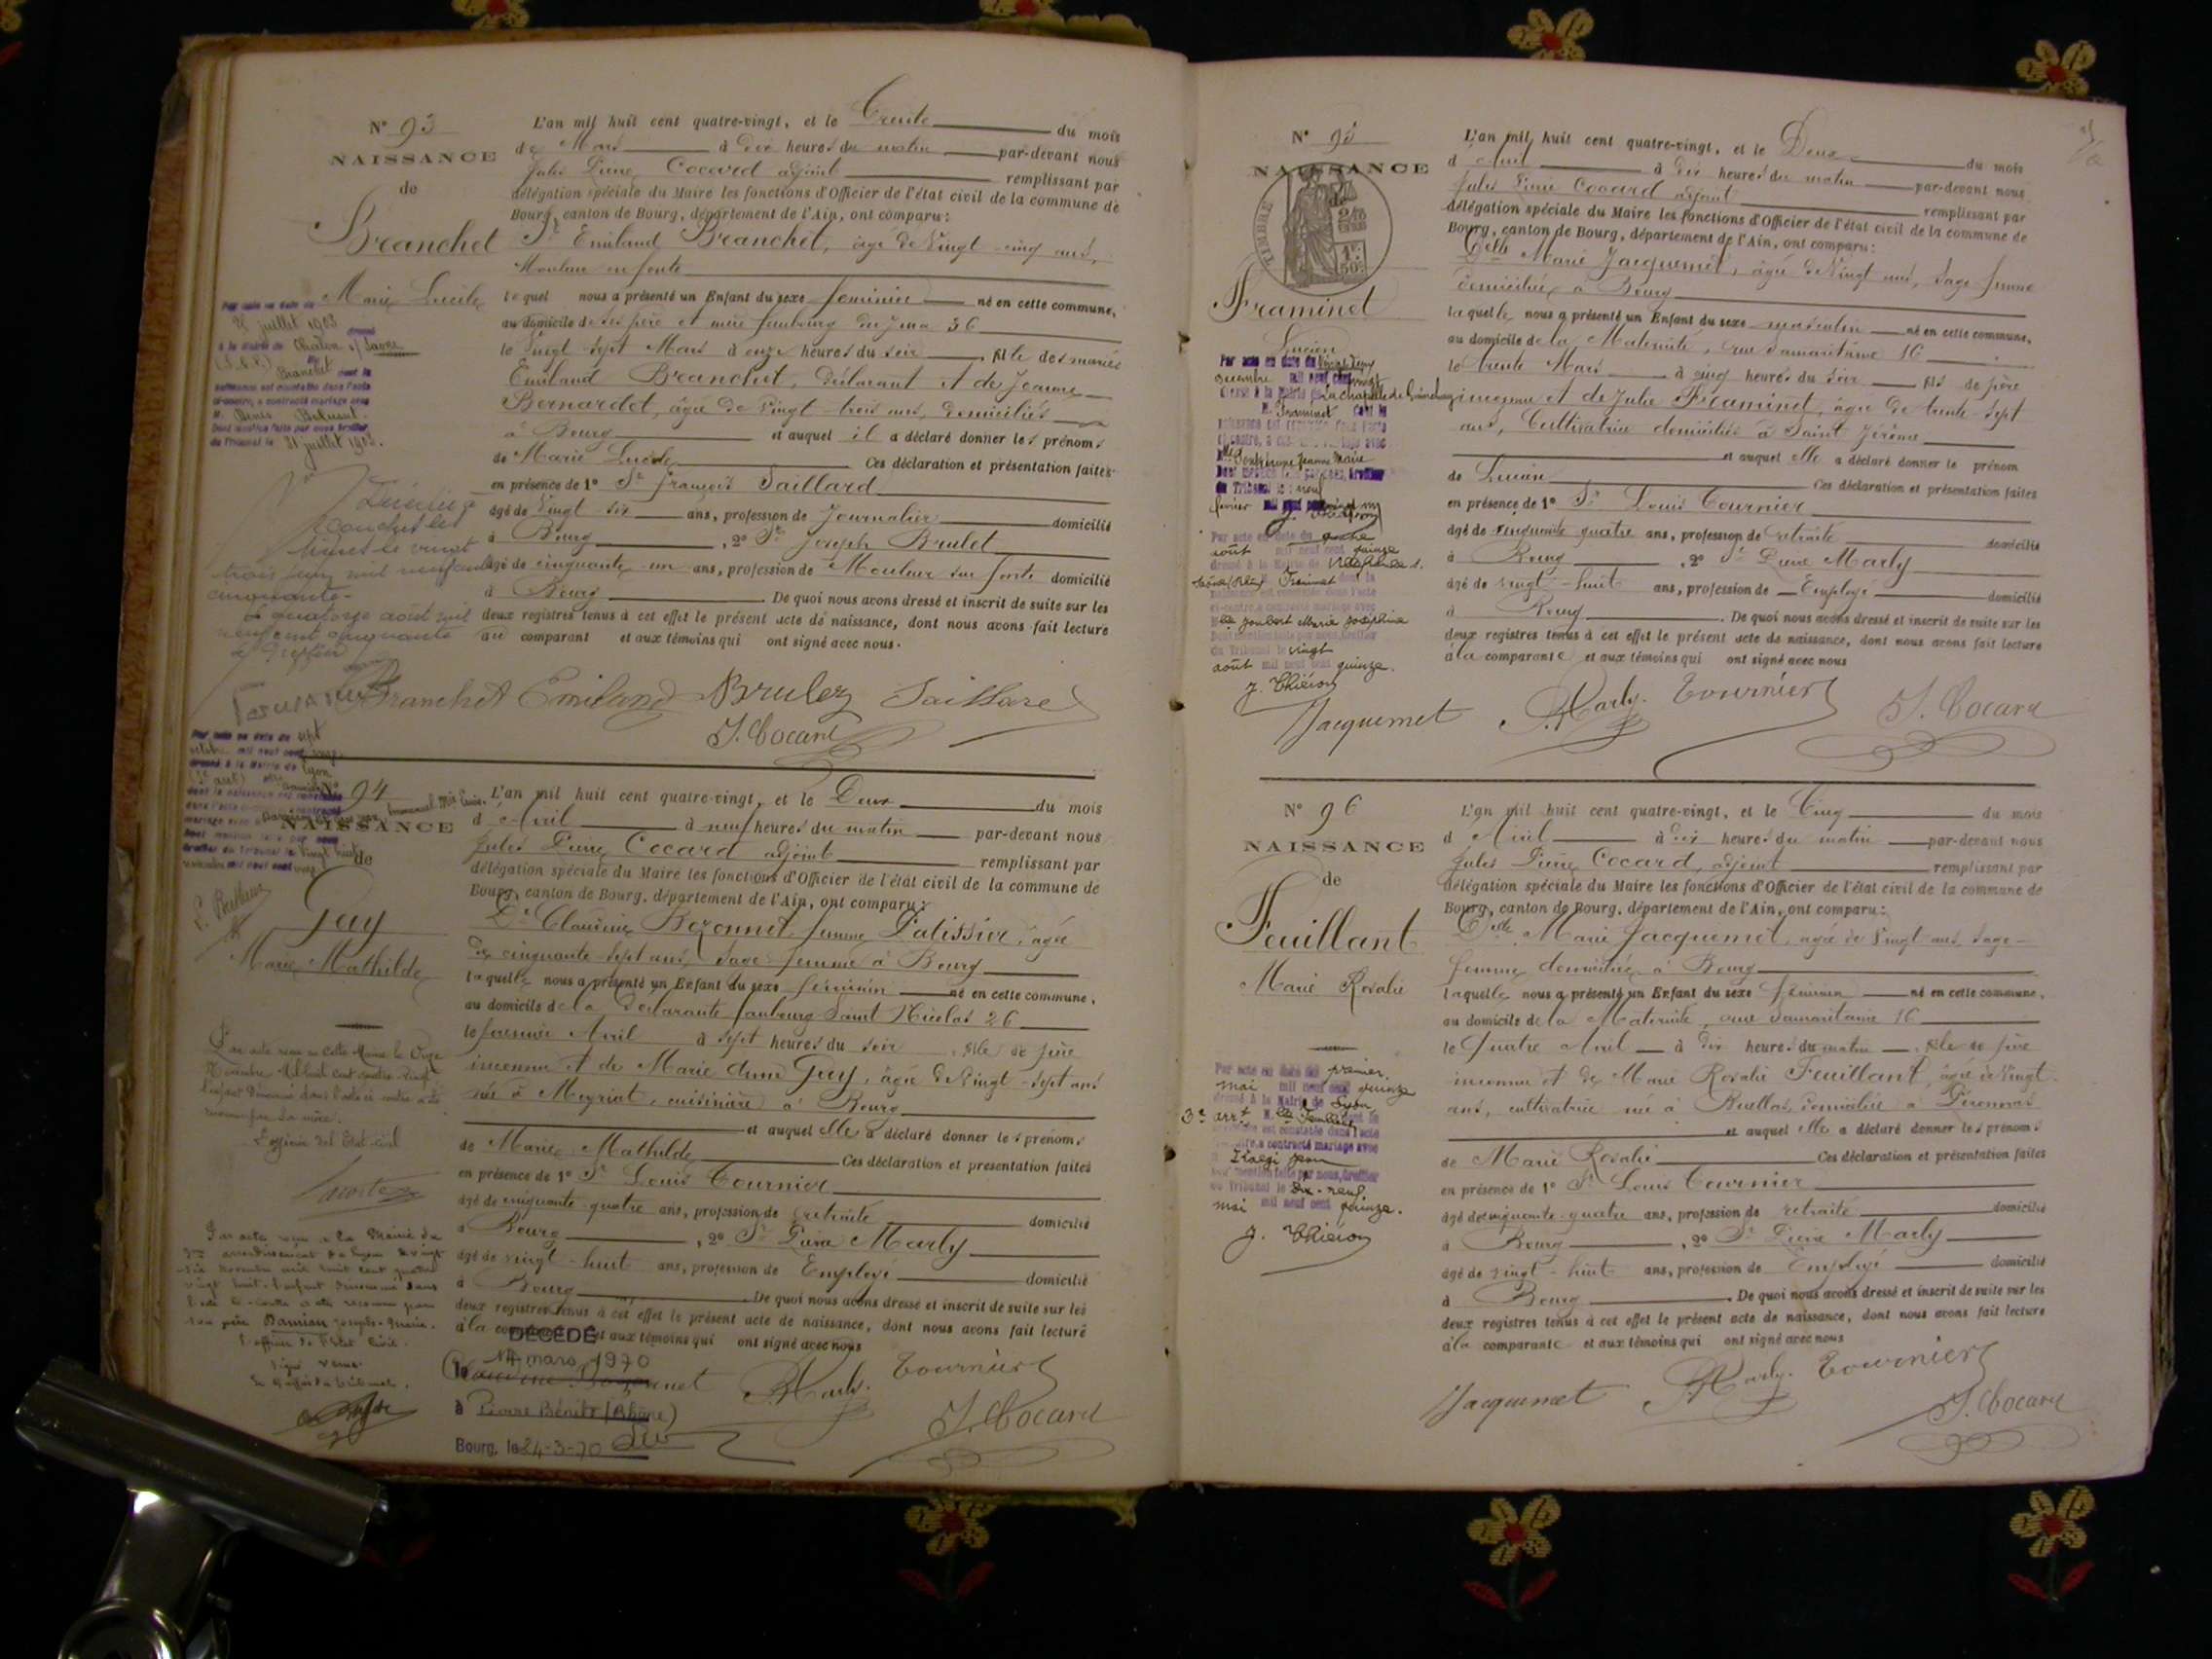 N° 93
NAISSANCE
de
Branchet
Marie Lucile
L'an mil huit cent quatre-vingt, et le Trente du mois
de Mars à dix heures du matin par-devant nous
Jules Pierre Cocard adjoint remplissant par
délégation spéciale du Maire les fonctions d'Officier de l'état civil de la commune de
Bourg, canton de Bourg, département de l'Ain, ont comparu:
Sr Emiland Branchet, âgé de Vingt-cinq ans,
Mouleur en fonte
lequel nous a présenté un Enfant du sexe féminin né en cette commune,
au domicile de ses père et mère faubourg du Jura 36
le Vingt-sept Mars à onze heures du soir, fille des mariés
Emiland Branchet, déclarant et de Jeanne
Bernardot, âgée de Vingt-trois ans, domiciliés
à Bourg et auquel il a déclaré donner les prénoms
de Marie Lucile Ces déclaration et présentation faites
en présence de 1° Sr François Saillard
âgé de Vingt-six ans, profession de Journalier domicilié
à Bourg, 2° Sr Joseph Brulet
âgé de cinquante-un ans, profession de Mouleur sur fonte domicilié
à Bourg De quoi nous avons dressé et inscrit de suite sur les
deux registres tenus à cet effet le présent acte de naissance, dont nous avons fait lecture
au comparant et aux témoins qui ont signé avec nous.
Par acte en date du
juillet 1903
à la mairie de Chalon s/ Saône
(S. & L.) Branchet dont la
naissance est constatée dans l'acte
ci-contre, a contracté mariage avec
M. Denis
du Tribunal le 31 juillet 1903.
trois juin mil neuf cent
cinquante
Le quatorze août mil
neuf cent cinquante
Branchet Emiland Brulez Saillard
J. Cocard
Par acte en date du sept
octobre mil neuf cent onze
dressé à la Mairie de Lyon
N° 94
NAISSANCE
de
Guy
Marie Mathilde
L'an mil huit cent quatre-vingt, et le Deux du mois
d'Avril à neuf heures du matin par-devant nous
Jules Pierre Cocard adjoint remplissant par
délégation spéciale du Maire les fonctions d'Officier de l'état civil de la commune de
Bourg, canton de Bourg, département de l'Ain, ont comparu:
De Claudine Bozonnet femme Patissier, âgée
de cinquante-sept ans, Sage-femme à Bourg
laquelle nous a présenté un Enfant du sexe féminin né en cette commune,
au domicile de la déclarante faubourg Saint Nicolas 26
le premier Avril à sept heures du soir, fille de père
inconnu et de Marie Guy, âgée de Vingt-sept ans
née à Meyriat, cuisinière à Bourg
et auquel elle a déclaré donner les prénoms
de Marie Mathilde Ces déclaration et présentation faites
en présence de 1° Sr Louis Tournier
âgé de cinquante-quatre ans, profession de retraité domicilié
à Bourg, 2° Sr Pierre Marly
âgé de vingt-huit ans, profession de Employé domicilié
à Bourg De quoi nous avons dressé et inscrit de suite sur les
deux registres tenus à cet effet le présent acte de naissance, dont nous avons fait lecture
à la et aux témoins qui ont signé avec nous
Par acte reçu en cette Mairie le Onze
Novembre Mil huit cent quatre-vingt
l'enfant dénommé dans l'acte ci contre a été
reconnu par sa mère.
L'officier de l'Etat-civil
Par acte reçu à la Mairie du
arrondissement de Lyon le vingt
six novembre mil huit cent quatre
vingt huit, l'enfant dénommé dans
l'acte ci-contre a été reconnu par
son père Damian Joseph-Marie.
L'officier de l'Etat civil.
Le Greffier du tribunal.
DÉCÉDÉ
le 14 mars 1970
à Pierre Bénite (Rhône)
Bourg, le 24-3-70
Marly. Tournier
J. Cocard
N° 95
NAISSANCE
de
TIMBRE
Framinet
Lucien
L'an mil huit cent quatre-vingt, et le Deux du mois
d'Avril à dix heures du matin par-devant nous
Jules Pierre Cocard adjoint remplissant par
délégation spéciale du Maire les fonctions d'Officier de l'état civil de la commune de
Bourg, canton de Bourg, département de l'Ain, ont comparu:
Delle Marie Jacquemet, âgée de Vingt ans, Sage femme
domiciliée à Bourg
laquelle nous a présenté un Enfant du sexe masculin né en cette commune,
au domicile de la Maternité, rue Samaritaine 16
le trente Mars à cinq heures du soir fils de père
inconnu et de Julie Framinet, âgée de trente-sept
ans, Cultivatrice domiciliée à Saint Jérôme
et auquel elle a déclaré donner le prénom
de Lucien Ces déclaration et présentation faites
en présence de 1° Sr Louis Tournier
âgé de cinquante quatre ans, profession de retraité domicilié
à Bourg, 2° Sr Pierre Marly
âgé de vingt-huit ans, profession de Employé domicilié
à Bourg De quoi nous avons dressé et inscrit de suite sur les
deux registres tenus à cet effet le présent acte de naissance, dont nous avons fait lecture
à la comparante et aux témoins qui ont signé avec nous
Par acte en date du
août mil neuf cent quinze
dressé à la Mairie de
naissance est constatée dans l'acte
ci-contre, a contracté mariage avec
Mlle Joubert Marie Joséphine
du Tribunal le vingt
août mil neuf cent quinze.
J. Thiéron
Jacquemet Marly. Tournier J. Cocard
N° 96
NAISSANCE
de
Feuillant
Marie Rosalie
L'an mil huit cent quatre-vingt, et le Cinq du mois
d'Avril à dix heures du matin par-devant nous
Jules Pierre Cocard, adjoint remplissant par
délégation spéciale du Maire les fonctions d'Officier de l'état civil de la commune de
Bourg, canton de Bourg, département de l'Ain, ont comparu:
Delle Marie Jacquemet, âgée de Vingt ans, Sage-
femme, domiciliée à Bourg
laquelle nous a présenté un Enfant du sexe féminin né en cette commune,
au domicile de la Maternité, rue Samaritaine 16
le Quatre Avril à dix heures du matin, fille de père
inconnu et de Marie Rosalie Feuillant, âgée de Vingt
ans, cultivatrice née à Buellas, domiciliée à Péronnas
et auquel elle a déclaré donner les prénoms
de Marie Rosalie Ces déclaration et présentation faites
en présence de 1° Sr Louis Tournier
âgé de cinquante-quatre ans, profession de retraité domicilié
à Bourg, 2° Sr Pierre Marly
âgé de vingt-huit ans, profession de Employé domicilié
à Bourg De quoi nous avons dressé et inscrit de suite sur les
deux registres tenus à cet effet le présent acte de naissance, dont nous avons fait lecture
à la comparante et aux témoins qui ont signé avec nous
Par acte en date du premier
mai mil neuf cent quinze
dressé à la Mairie de Lyon
3e arrt
a contracté mariage avec
du Tribunal le dix-neuf
mai mil neuf cent quinze.
J. Thiéron
Jacquemet Marly. Tournier
J. Cocard